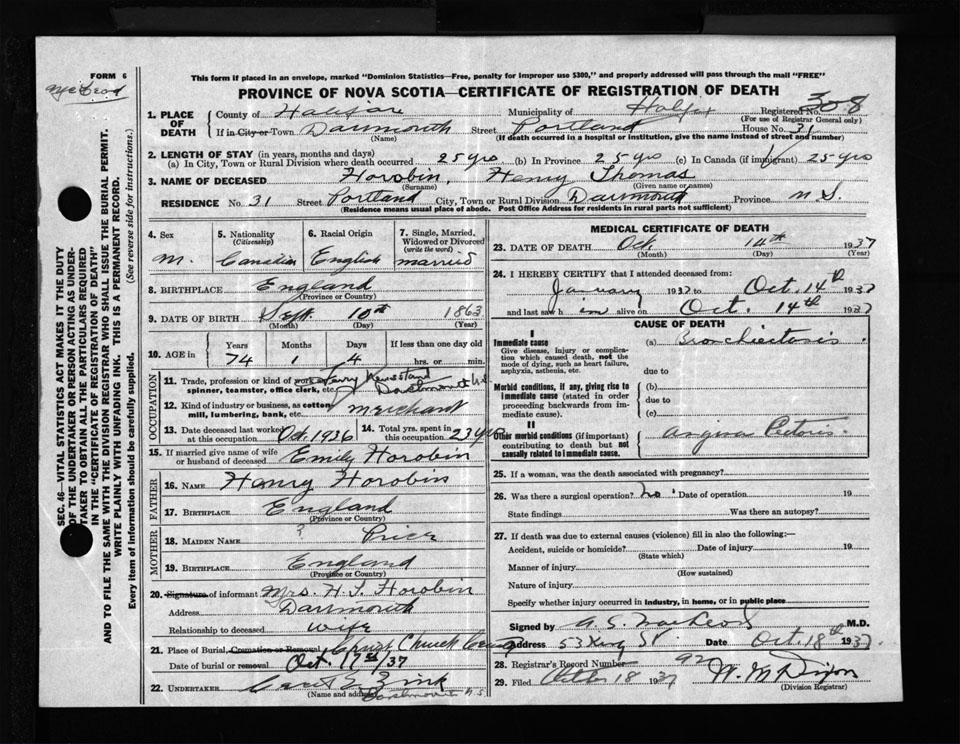 FORM 6
This form if placed in an envelope, marked "Dominion Statistics—Free, penalty for improper use $300," and properly addressed will pass through the mail "FREE"
PROVINCE OF NOVA SCOTIA—CERTIFICATE OF REGISTRATION OF DEATH
1. PLACE OF DEATH
County of Halifax Municipality of Halifax Registered No. 308
(For use of Registrar General only)
If in City or Town Dartmouth Street Portland House No. 31
(Name) (If death occurred in a hospital or institution, give the name instead of street and number)
2. LENGTH OF STAY (in years, months and days)
(a) In City, Town or Rural Division where death occurred 25 yrs (b) In Province 25 yrs (c) In Canada (if immigrant) 25 yrs
3. NAME OF DECEASED Horobin, Henry Thomas
(Surname) (Given name or names)
RESIDENCE No. 31 Street Portland City, Town or Rural Division Dartmouth Province N S.
(Residence means usual place of abode. Post Office Address for residents in rural parts not sufficient)
4. Sex M.
5. Nationality (Citizenship) Canadian
6. Racial Origin English
7. Single, Married, Widowed or Divorced (write the word) married
8. BIRTHPLACE England
(Province or Country)
9. DATE OF BIRTH Sept. 10th 1863
(Month) (Day) (Year)
10. AGE in Years Months Days If less than one day old
74 1 4 hrs. or min.
OCCUPATION
11. Trade, profession or kind of work as spinner, teamster, office clerk, etc. Ferry Newsstand Dartmouth N.S.
12. Kind of industry or business, as cotton mill, lumbering, bank, etc. Merchant
13. Date deceased last worked at this occupation Oct. 1936
14. Total yrs. spent in this occupation 23 yrs
15. If married give name of wife or husband of deceased Emily Horobin
FATHER
16. NAME Henry Horobin
17. BIRTHPLACE England
(Province or Country)
MOTHER
18. MAIDEN NAME ? Price
19. BIRTHPLACE England
(Province or Country)
20. Signature of informant Mrs. H. T. Horobin
Address Dartmouth
Relationship to deceased wife
21. Place of Burial, Cremation or Removal Christ Church Cem
Date of burial or removal Oct. 17th/37
22. UNDERTAKER Zink
(Name and address) Dartmouth N.S.
MEDICAL CERTIFICATE OF DEATH
23. DATE OF DEATH Oct. 14th 1937
(Month) (Day) (Year)
24. I HEREBY CERTIFY that I attended deceased from:
January 1937 to Oct. 14th 1937
and last saw h im alive on Oct. 14th 1937
CAUSE OF DEATH
I
Immediate cause
Give disease, injury or complication which caused death, not the mode of dying, such as heart failure, asphyxia, asthenia, etc.
(a) Bronchiectasis
due to
Morbid conditions, if any, giving rise to immediate cause (stated in order proceeding backwards from immediate cause).
(b)
due to
(c)
II
Other morbid conditions (if important) contributing to death but not causally related to immediate cause.
Angina Pectoris
25. If a woman, was the death associated with pregnancy?
26. Was there a surgical operation? No. Date of operation 19
State findings Was there an autopsy?
27. If death was due to external causes (violence) fill in also the following:—
Accident, suicide or homicide? Date of injury 19
(State which)
Manner of injury
(How sustained)
Nature of injury
Specify whether injury occurred in industry, in home, or in public place
Signed by A S. MacKeod M.D.
Address 53 King St. Date Oct. 18th 1937
28. Registrar's Record Number 92
29. Filed October 18 1937 W. M Dixon
(Division Registrar)
SEC. 46—VITAL STATISTICS ACT MAKES IT THE DUTY OF THE UNDERTAKER OR PERSON ACTING AS UNDERTAKER TO OBTAIN ALL THE PARTICULARS REQUIRED IN THE "CERTIFICATE OF REGISTRATION OF DEATH" AND TO FILE THE SAME WITH THE DIVISION REGISTRAR WHO SHALL ISSUE THE BURIAL PERMIT.
WRITE PLAINLY WITH UNFADING INK. THIS IS A PERMANENT RECORD.
Every item of information should be carefully supplied. (See reverse side for instructions.)